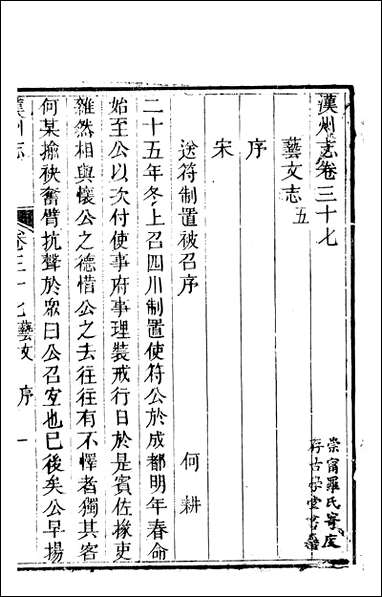 漢州志卷三十七
藝文志五
序
宋
送符制置被召序　何耕
二十五年冬上召四川制置使符公於成都明年春命
始至公以次付使事府事理裝戒行日於是賓佐掾吏
雜然相與懷公之德惜公之去往往有不懌者獨其客
何某揄袂奮臂抗聲於眾曰公召宜也巳後矣公早揚
漢州志　卷三十七藝文　序　一
崇甯羅氏寄度
存古學堂書籍